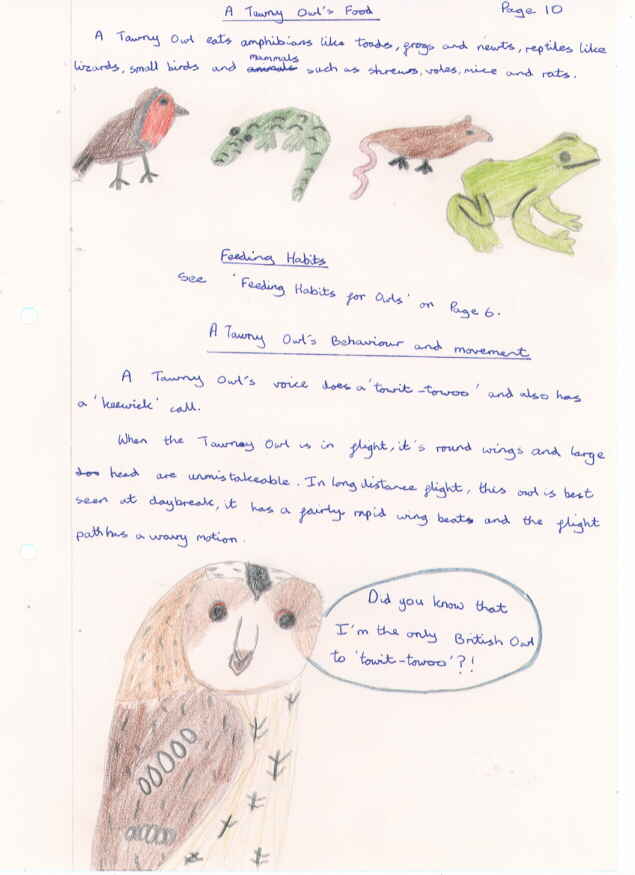 A Tawny Owl's Food
Page 10
A Tawny Owl eats amphibians like toads, frogs and newts, reptiles like
lizards, small birds and mammals such as shrews, voles, mice and rats.
Feeding Habits
See 'Feeding Habits for Owls' on Page 6.
A Tawny Owl's Behaviour and movement
A Tawny Owl's voice does a 'towit-towoo' and also has
a 'keewick' call.
When the Tawney Owl is in flight, it's round wings and large
head are unmistakeable. In long distance flight, this owl is best
seen at daybreak, it has a fairly rapid wing beats and the flight
path has a wavy motion.
Did you know that
I'm the only British Owl
to 'towit-towoo'?!